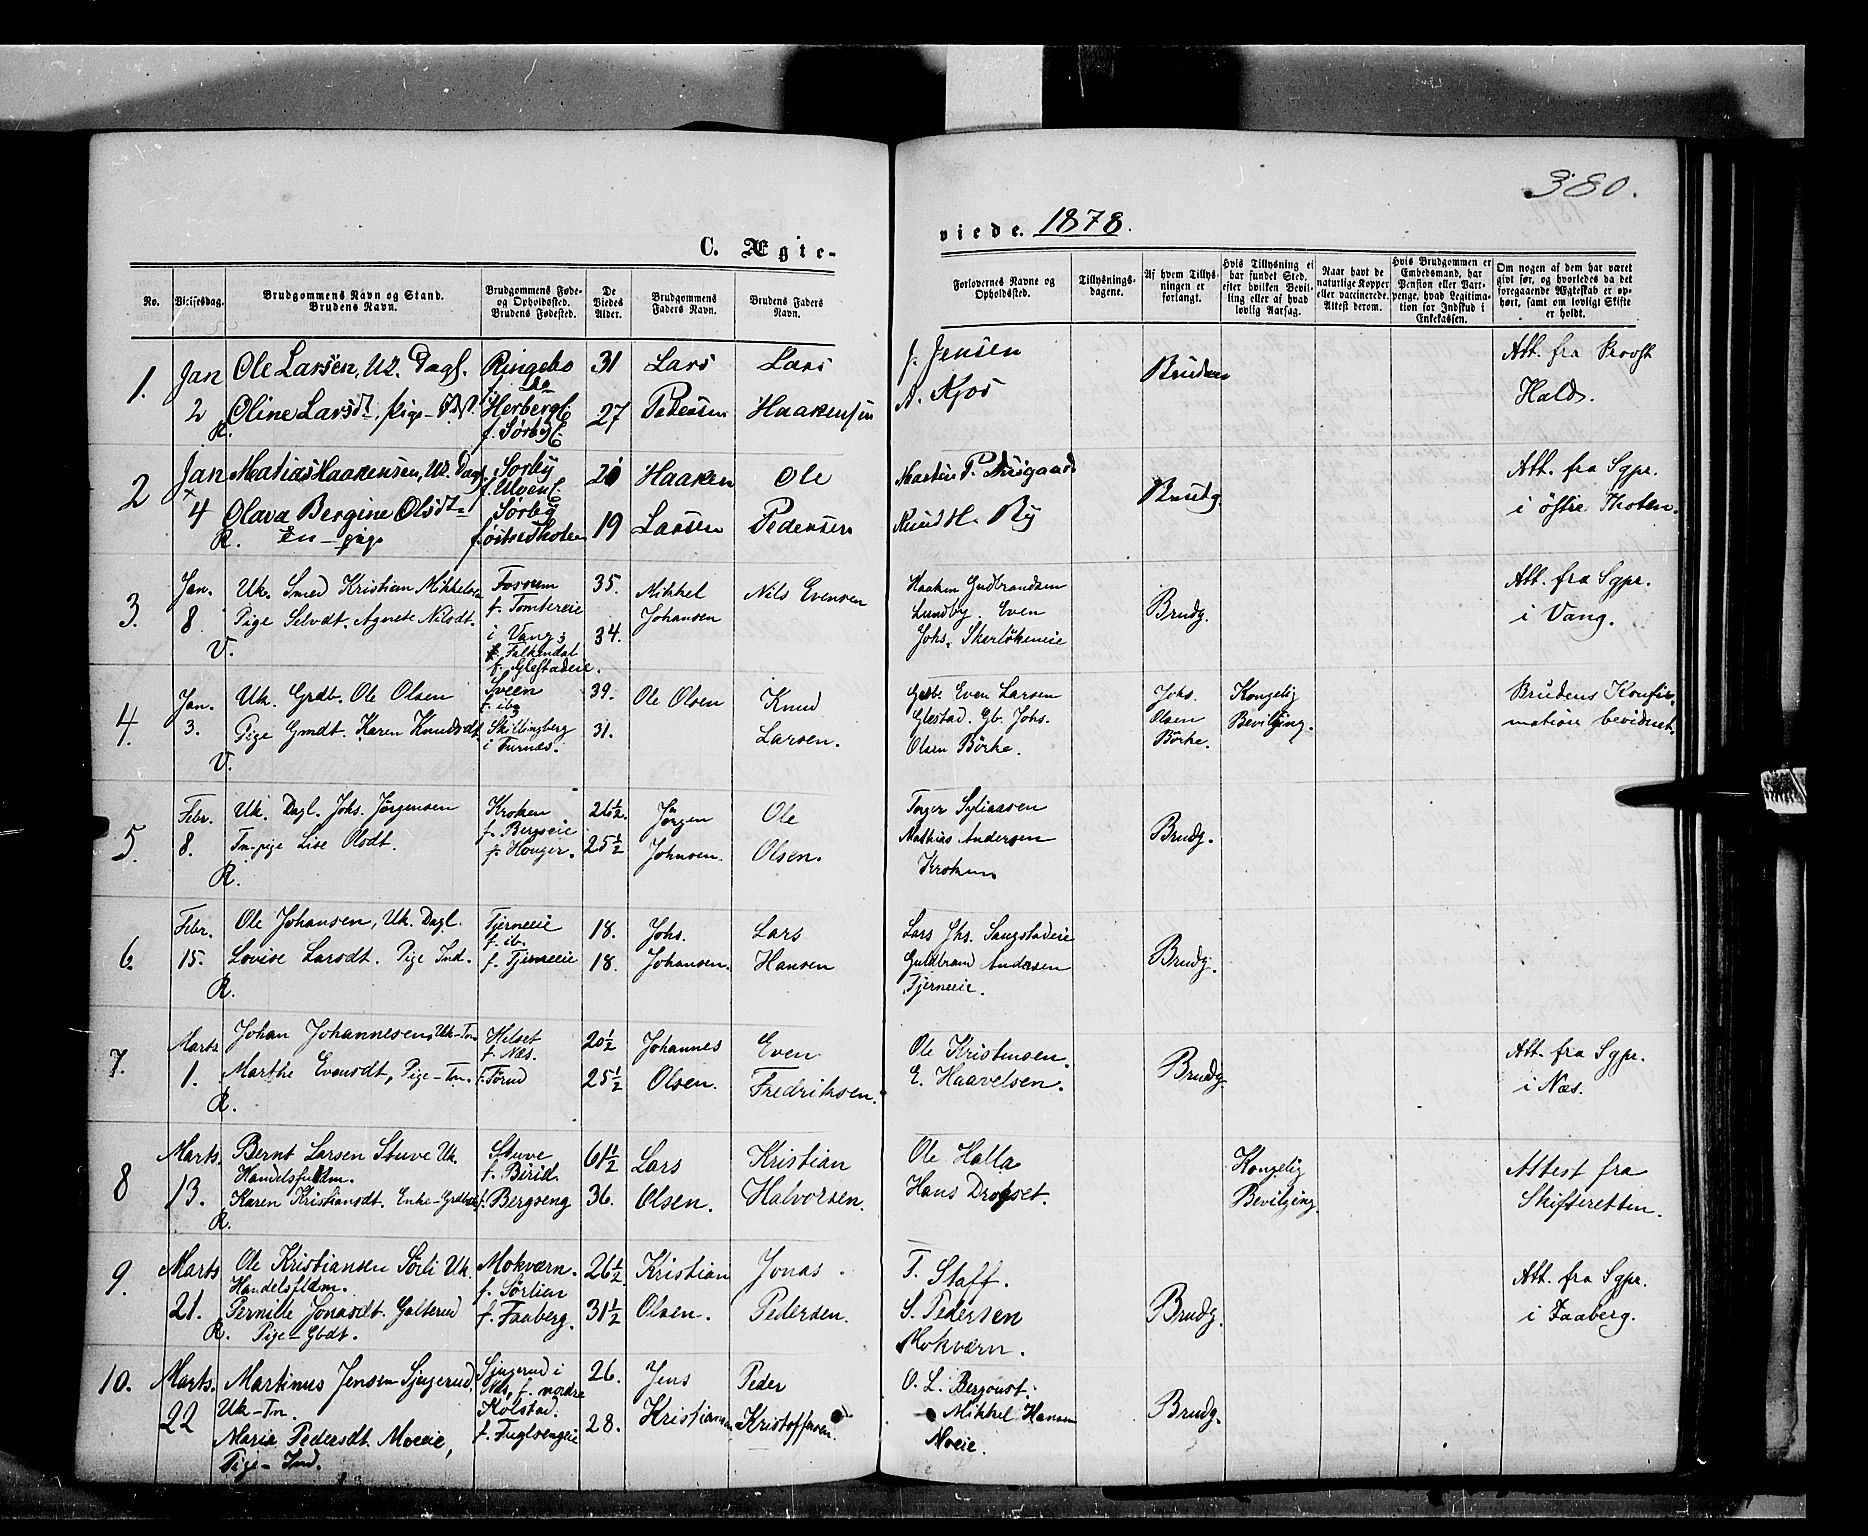 380.
C. Ægte-
viede. 1878.
No.
Vielsesdag.
Brudgommens Navn og Stand.
Brudens Navn.
Brudgommens Føde-
og Opholdssted.
Brudens Fødested.
De
Viedes
Alder.
Brudgommens
Faders Navn.
Brudens Faders
Navn.
Forlovernes Navne og
Opholdssted.
Tillysnings-
dagene.
Af hvem Tillys-
ningen er
forlangt.
Hvis Tillysning ei
har fundet Sted,
efter hvilken Bevil-
ling eller af hvad
lovlig Aarsag.
Naar havt de
naturlige Kopper
eller vaccinerede.
Attest derom.
Hvis Brudgommen er
Embedsmand, har
Pension eller Vart-
penge, hvad Legitima-
tion for Indskud i
Enkekassen.
Om nogen af dem har været
givt før, og hvorledes da det
foregaaende Ægteskab er op-
hørt, samt om lovligt Skifte
er holdt.
1.
Jan
2
R.
Ole Larsen, Uk. Dagl.
Oline Larsdt. pige
Ringebo
Herberg
f. Sørby
31
27
Lars
Pedersen
Lars
Haakensen
J. Jensen
A. Kjos
Bruden
Att. fra Provst
Halds.
2
Jan
4
R.
Matias Haakensen, Uk. Dagl.
Olava Bergine Olsdt.
Tn-pige
Sørby
f. Ulven
Sørby
f. østre Thoten
19
Haaken
Larsen
Ole
Pedersen
H. Ry
Brudg.
Att. fra Sgpr.
i østre Thoten.
3.
Jan.
8.
V.
Uk. Smed Kristian Mikkelsen
Pige Selvdt. Agnete Nilsdt.
Fossum
f. Tomtereie
i Vang;
Falkendal
f. Glestadeie.
35.
34.
Mikkel
Johansen
Nils Evensen
Haaken Gudbrandsen
Lundby. Even
Johs. Skerløkeneie
Brudg.
Att. fra Sgpr.
i Vang.
4.
Jan.
3.
V.
Uk. Grdb. Ole Olsen
Pige Gmdt. Karen Knudsdt.
Sveen
f. ib;
Skillingberg
i Furnes.
39.
31.
Ole Olsen
Knud
Larsen.
Even Larsen
Glestad. Gb. Johs.
Olsen Børke.
Johs.
Olsen
Børke.
Kongelig
Bevilging.
Brudens Konfir-
mation bevidnet.
5.
Febr.
8.
R.
Uk. Dagl. Johs. Jørgensen
Tn-pige Lise Olsdt.
Kroken
f. Bergseie
f. Honger.
26½.
25½
Jørgen
Johnsen.
Ole
Olsen.
Torger Syliaasen
Mathias Andersen
Kroken
Brudg.
6.
Febr.
15.
R.
Ole Johansen, Uk. Dagl.
Lovise Larsdt. Pige Ind.
Tjerneeie
f. ib.
f. Tjerneeie
18.
18.
Johs.
Johansen.
Lars
Hansen
Lars Jhs. Saugstadeie
Guldbrand Andersen
Tjerneeie.
Brudg.
7.
Marts
1.
R.
Johan Johannesen, Uk-Tn
Marthe Evensdt, Pige-Tn.
Hilset
f. Næs.
f. Førud
20½
25½
Johannes
Olsen.
Even
Fredriksen.
Ole Kristensen.
E. Haavelsen.
Brudg.
Att. fra Sgpr.
i Næs.
8
Marts.
13.
R.
Bernt Larsen Stuve Uk.
Handelsfuldm.
Karen Kristiansdt. Enke-
Stuve
f. Birid.
f. Bergseng
61½
36.
Lars
Olsen.
Kristian
Halvorsen.
Ole Halla
Hans Drogset.
Kongelig
Bevilging.
Attest fra
Skifteretten.
9.
Marts
21.
R.
Ole Kristiansen Sørli Uk.
Handelsfldm.
Pernille Jonasdt. Galterud
Pige-Gbdt.
Mokværn.
f. Sørlien
f. Faaberg.
26½
31½
Kristian
Olsen.
Jonas
Pedersen.
T. Staff.
S. Pedersen
Mokværn.
Brudg.
Att. fra Sgpr.
i Faaberg.
10.
Marts.
22
Martinus Jensen Sjugerud.
Uk-Tn.
Marie Pedersdt. Moeie,
Pige-Ind.
Sjugerud i
Næs, f. nordre
Kolstad.
f. Fuglsengeie
26.
28.
Jens
Kristiansen
Peder
Kristoffersen.
O. L. Bergoust.
Mikkel Hansen
Moeie.
Brudg.